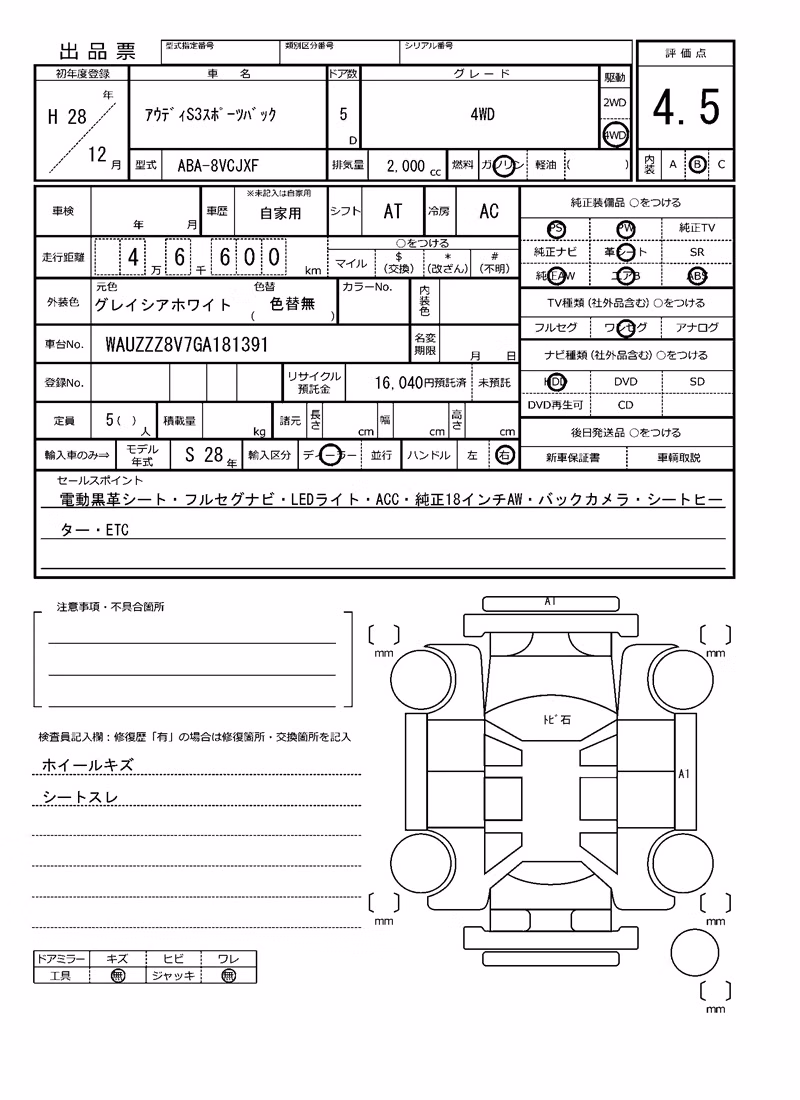 出品票
型式指定番号 類別区分番号 シリアル番号
評価点
4.5
内装 A B C
初年度登録 車名 ドア数 グレード 駆動
H 28 年 12 月
アウディS3スポーツバック
5 D
4WD
2WD
4WD
型式 ABA-8VCJXF 排気量 2,000 cc 燃料 ガソリン 軽油 ( )
車検 年 月 車歴 ※未記入は自家用 自家用 シフト AT 冷房 AC
走行距離 4 万 6 千 6 0 0 km
○をつける
マイル $ (交換) * (改ざん) # (不明)
外装色 元色 グレイシアホワイト 色替 ( 色替無 ) カラーNo. 内装色
車台No. WAUZZZ8V7GA181391 名変期限 月 日
登録No. リサイクル預託金 16,040円預託済 未預託
定員 5( )人 積載量 kg 諸元 長さ cm 幅 cm 高さ cm
輸入車のみ⇒ モデル年式 S 28 年 輸入区分 ディーラー 並行 ハンドル 左 右
純正装備品 ○をつける
PS PW 純正TV
純正ナビ 革シート SR
純正AW エアB ABS
TV種類(社外品含む)○をつける
フルセグ ワンセグ アナログ
ナビ種類(社外品含む)○をつける
HDD DVD SD
DVD再生可 CD
後日発送品 ○をつける
新車保証書 車輌取説
セールスポイント
電動黒革シート・フルセグナビ・LEDライト・ACC・純正18インチAW・バックカメラ・シートヒー
ター・ETC
注意事項・不具合箇所
検査員記入欄：修復歴「有」の場合は修復箇所・交換箇所を記入
ホイールキズ
シートスレ
ドアミラー キズ ヒビ ワレ
工具 無 ジャッキ 無
A1
mm mm
トビ石
A1
mm mm
mm